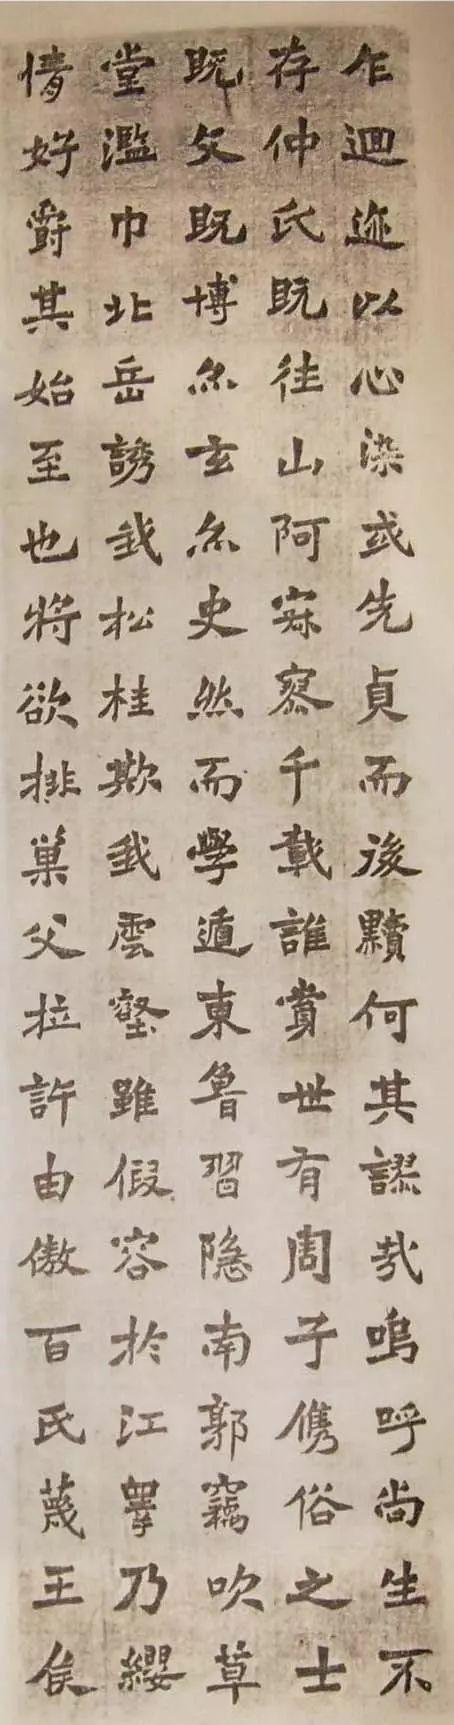 乍迴迹以心染或先貞而後黷何其謬哉嗚呼尚生不
存仲氏既往山阿寂寥千載誰賞世有周子儁俗之士
既文既博亦玄亦史然而學遁東魯習隱南郭竊吹草
堂濫巾北岳誘我松桂欺我雲壑雖假容於江皋乃纓
情好爵其始至也將欲排巢父拉許由傲百氏蔑王侯